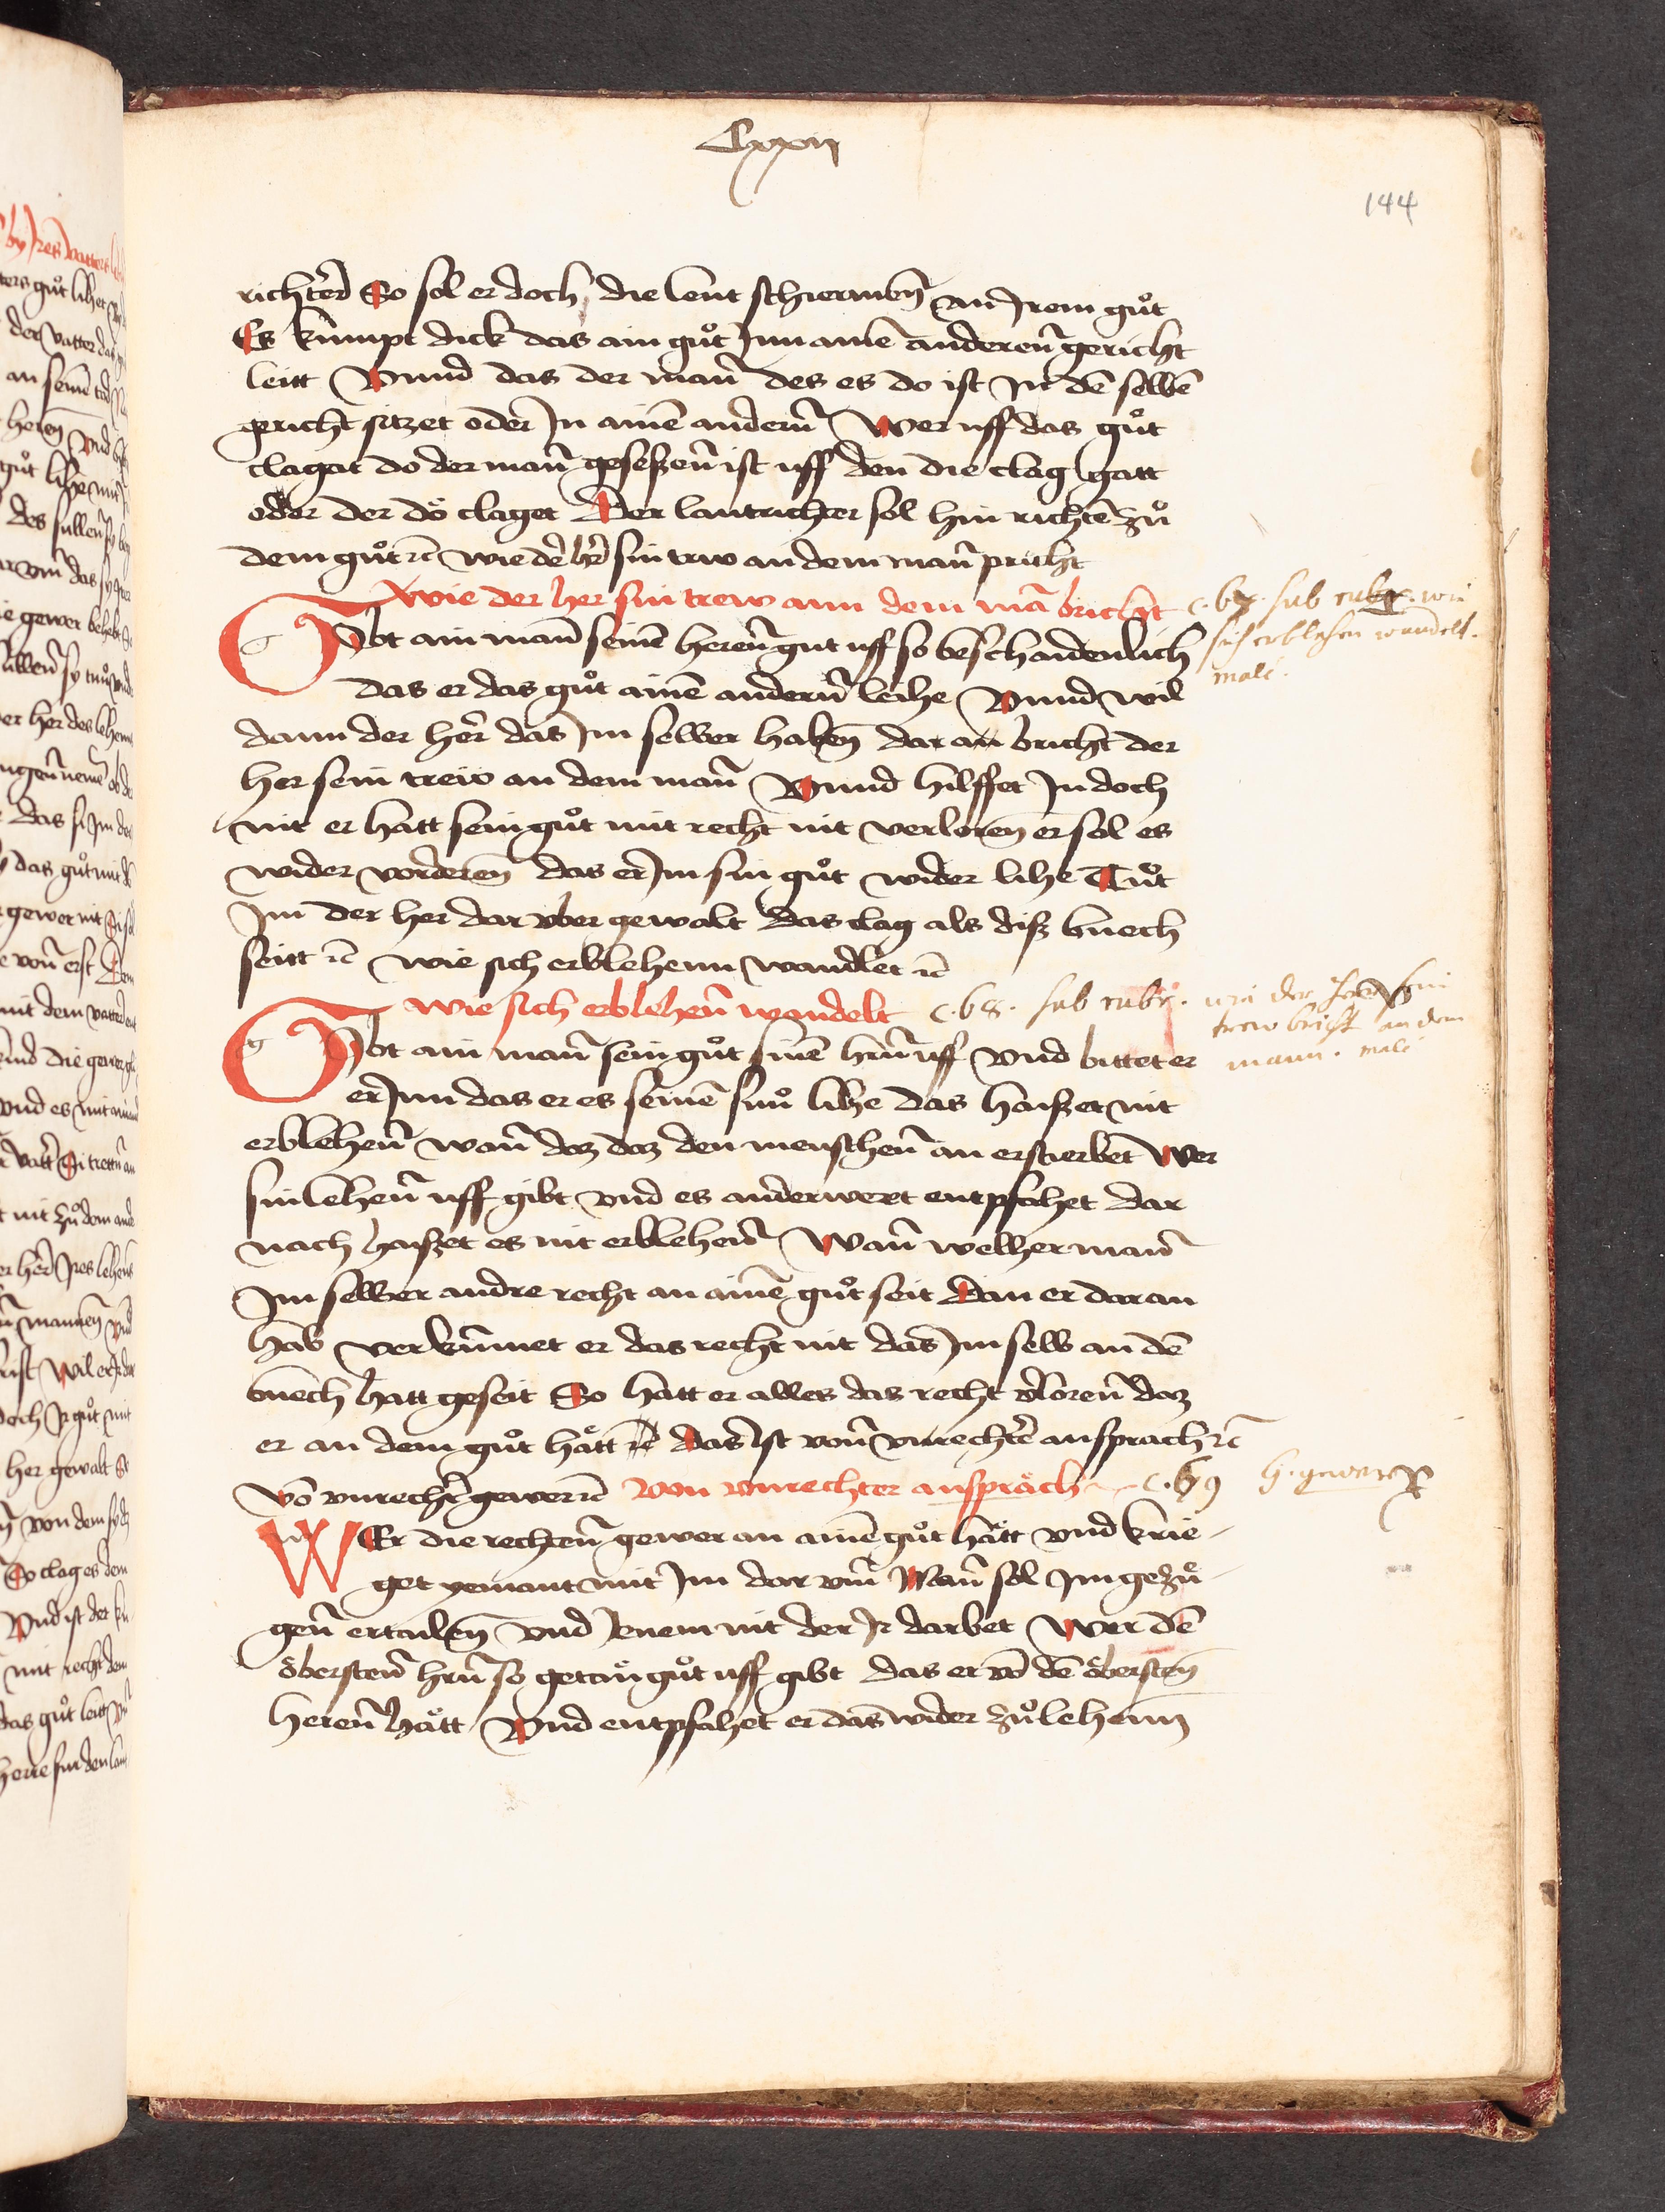 Clxxii
144
richter~ So sol er doch die leut schiermen~ an Jrem gůt
Es kumpt dick das ain gůt Jnn aine~ anderen~ gericht
leitt Vnnd das der man~ des es do ist Jn de~ selbe~
gericht sitzet oder Jn aine~ andern~ Wer uff das gůt
clagat do der man~ geseßen~ ist uff den die clag gatt
oder der do claget Der lantrichter sol hin richte~ zů
dem gůt rc~ wie de~ h~r sin trw an dem man~ pricht
Wie der her sin trew ann dem ma~ bricht
c. 67. sub rubr. wie
sich erblehen wandelt.
male.
GIbt ain man~ seine~ heren~ gut uff so beschaidenlich
das er das gůt aine~ andern~ leihe Vnnd wil
dann der her~ das Jm selber haben~ dar an bricht der
her sein treiv an dem man~ Vnnd hilffet Jn doch
nit er hatt sein gůt mit recht nit verloren~ er sol es
wider vorderen~ das er Jm sin gůt wider lihe Tůt
Jm der her dar vber gewalt Das clag als diß buech
seitt rc~ wie sich erblehenn wandlet rc~
Wie sich erblehen~ wandelt
c. 68. sub rubr. wie der Herr sein
trew bricht an dem
mann. male
GIbt ain man~ sein gůt sine~ hern~ uff vnd bittet er
er Jnn das er es seine~ sunů lihe das haißet nit
erblehen~ wan~ daz daz den menschen~ an erstierbet Wer
sin lehen~ uff gibt vnd es anderwert entpfahet dar
nach haißet es nit erblehen~ Wan~ welher man~
Jm selber andre recht an aine~ gůt seit Dan er dar an
hab verkumet er das recht nit das Jm selb an de~
buech hatt geseit So hatt er alles das recht v~loren~ daz
er an dem gůt hatt rc~ Das ist von~ vnrechte~ ansprach rc~
Vo~ vnrecht~ gewer rc~ Von vnrechter anspräch
c. 69 h. gewere
WEr die rechten~ gewer an aine~ gůt hätt vnd krie-
get yemant mit Jm dar vm~ Man~ sol Jm gezů-
gen~ ertailen~ vnd Jenem nit der Jr darbet Wer de~
öbersten~ hrn~ so getan gůt uff gibt das er vo~ de~ öbersten~
heren~ hätt Vnd entpfahet er das wider zů lehenn